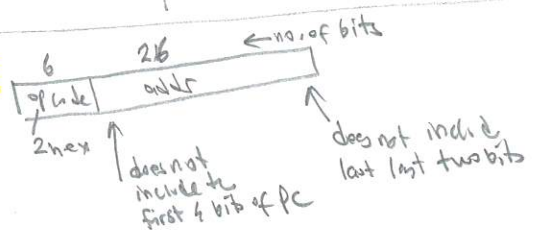 6 26 ← no. of bits
opcode addr
2 hex
does not
include the
first 4 bits of PC
does not includ
last last two bits